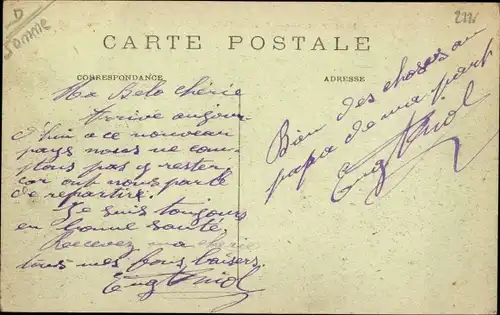 D
Somme
222
CARTE POSTALE
CORRESPONDANCE
ADRESSE
Ma Belo chérie
Arrive aujour
d'hui a ce nouveau
pays nous ne com
ptons pas y rester
car on nous parle
de repartir.
Je suis toujours
en bonne santé
Recevez ma chérie
tous mes bons baisers.
Eug
Bien des choses au
papa de ma part
Eug